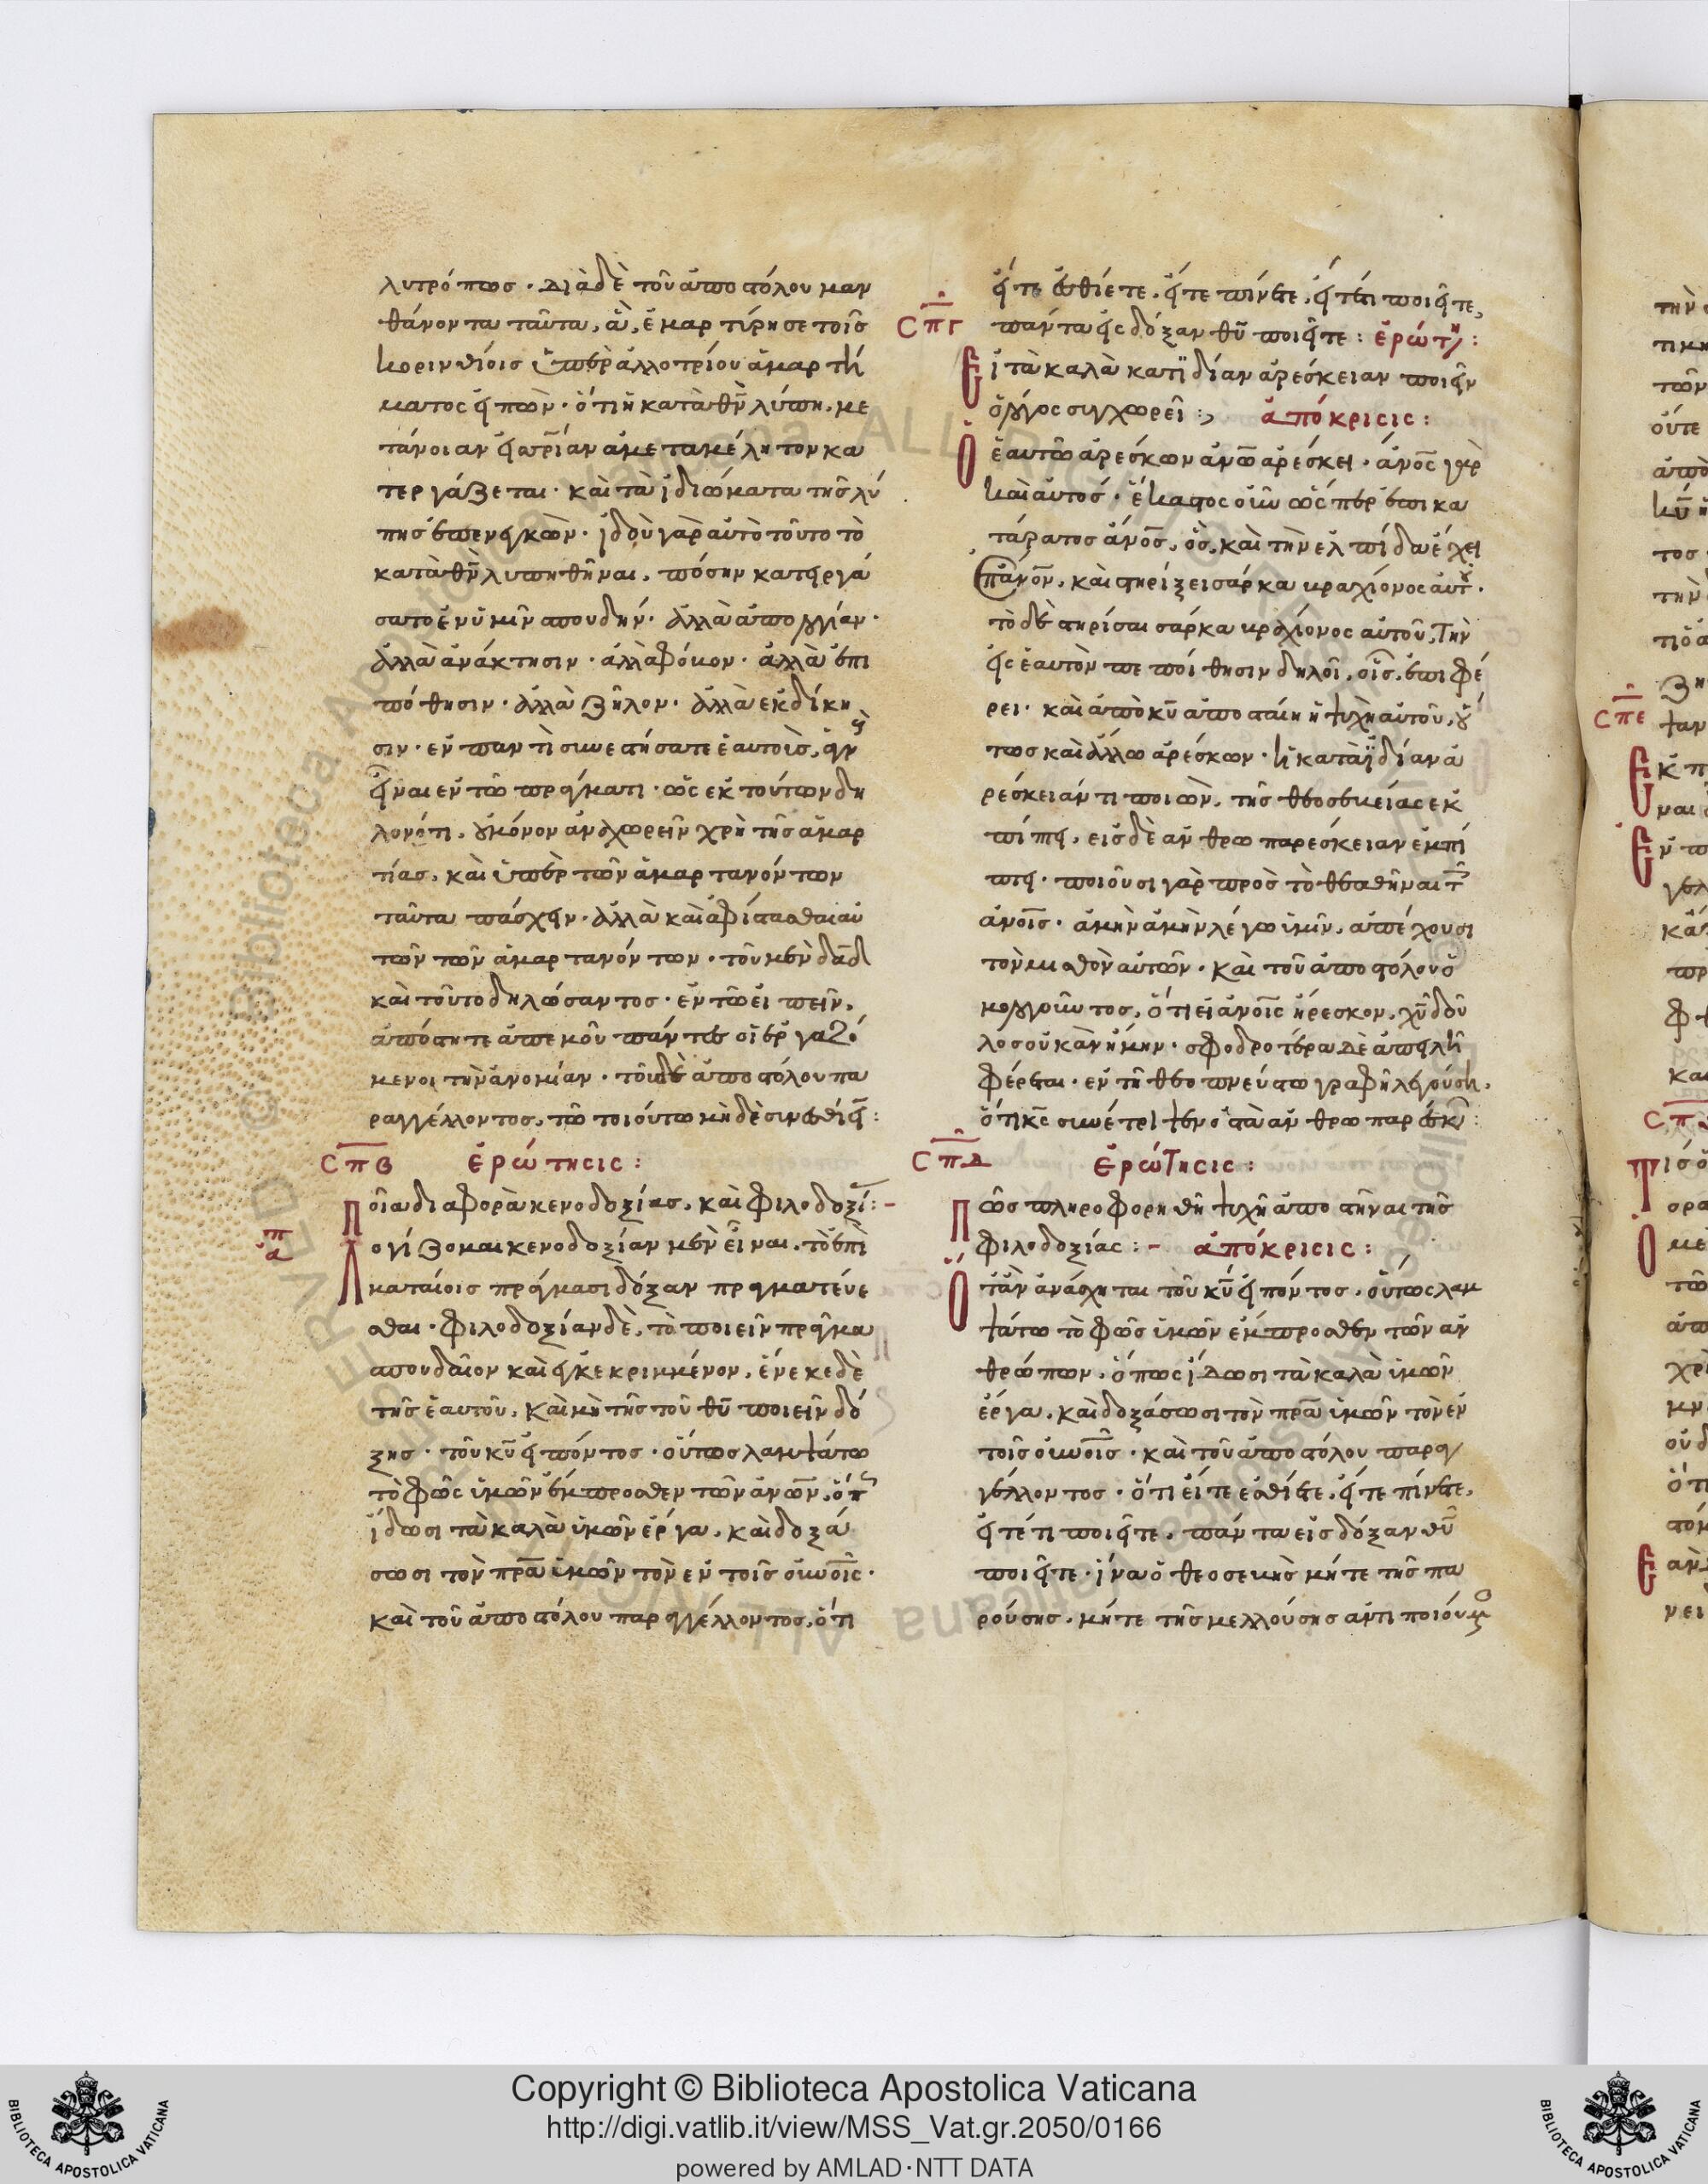 λυτρόπως · διὰ δὲ τοῦ ἀποστόλου μαν
θάνοντα ταῦτα, ἃ, ἐμαρτύρησε τοῖς
κορινθίοις ὑπὲρ ἀλλοτρίου ἁμαρτή
ματος εἰπὼν · ὅτι ἡ κατὰ θν λύπη, με
τάνοιαν εἰς σπρίαν ἀμεταμέλητον κα
τεργάζεται · καὶ τὰ ἰδιώματα τῆς λύ
πης ἐπενεγκὼν · ἰδοὺ γὰρ αὐτὸ τοῦτο τὸ
κατὰ θν λυπηθῆναι, πόσην κατειργά
σατο ἐν ὑμῖν σπουδήν · ἀλλὰ ἀπολογίαν ·
ἀλλὰ ἀνάκτησιν · ἀλλὰ φόβον · ἀλλὰ ἐπι
πόθησιν · ἀλλὰ ζῆλον · ἀλλὰ ἐκδίκη
σιν · ἐν παντὶ συνεστήσατε ἑαυτοὺς, ἁγν
εἶναι ἐν τῷ πράγματι · ὡς ἐκ τούτων δη
λονότι, οὐ μόνον ἀναχωρεῖν χρὴ τῆς ἁμαρ
τίας, καὶ ὑπὲρ τῶν ἁμαρτανόντων
ταῦτα πάσχειν · ἀλλὰ καὶ ἀφίστασθαι αὐ
τῶν τῶν ἁμαρτανόντων · τοῦ μὲν δαδ
καὶ τοῦτο δηλώσαντος · ἐν τῷ εἰπεῖν,
ἀπόστητε ἀπ' ἐμοῦ πάντες οἱ ἐργαζό
μενοι τὴν ἀνομίαν · τοῦ δὲ ἀποστόλου πα
ραγγέλλοντος, τῷ τοιούτῳ μηδὲ συνεσθίειν :
ΣΠΒ ἐρώτησις :
Ποία διαφορὰ κενοδοξίας, καὶ φιλοδοξί :-
Λογίζομαι κενοδοξίαν μὲν εἶναι, τὸ ἐπὶ
ματαίοις πράγμασι δόξαν πραγματεύε
σθαι · φιλοδοξίαν δὲ, τὸ ποιεῖν πρᾶγμα
σπουδαῖον καὶ ἐγκεκριμμένον, ἕνεκε δὲ
τῆς ἑαυτοῦ, καὶ μὴ τῆς τοῦ θυ ποιεῖν δό
ξης · τοῦ κυ εἰπόντος · οὕτως λαμψάτω
τὸ φῶς ὑμῶν ἔμπροσθεν τῶν ἀνων, ὅπ
ἴδωσι τὰ καλὰ ὑμῶν ἔργα, καὶ δοξά
σωσι τὸν πρα ὑμῶν τὸν ἐν τοῖς οὐνοῖς ·
καὶ τοῦ ἀποστόλου παραγγέλλοντος, ὅτι
εἴτε ἐσθίετε, εἴτε πίνετε, εἴτέ τι ποιεῖτε,
ΣΠΓ πάντα εἰς δόξαν θυ ποιεῖτε : ἐρώτη :
Εἰ τὰ καλὰ κατ' ἰδίαν ἀρέσκειαν ποιεῖν
ὁ λόγος συγχωρεῖ : ἀπόκρισις :
Ὁ ἑαυτῷ ἀρέσκων ἀνω ἀρέσκει · ἄνος γὰρ
καὶ αὐτός · ἕκαστος οὖν ὥσπερ ἐπικα
τάρατος ἄνος, ὃς, καὶ τὴν ἐλπίδα ἔχει
ἐπ' ἄνον, καὶ στηρίζει σάρκα βραχίονος αὐτ ·
τὸ δὲ στηρίσαι σάρκα βραχίονος αὐτοῦ, τὴν
εἰς ἑαυτὸν πεποίθησιν δηλοῖ, οἷς, ἐπιφέ
ρει · καὶ ἀπὸ κυ ἀποσταίη ἡ ψυχὴ αὐτοῦ, οὕ
τως καὶ ἄλλῳ ἀρέσκων · ἢ κατὰ ἰδίαν ἀ
ρέσκειάν τι ποιῶν, τῆς θεοσεβείας ἐκ
πίπτει, εἰς δὲ ἀνθρωπαρέσκειαν ἐμπί
πτει · ποιοῦσι γὰρ πρὸς τὸ θεαθῆναι τ
ἀνοις · ἀμὴν ἀμὴν λέγω ὑμῖν, ἀπέχουσι
τὸν μισθὸν αὐτῶν · καὶ τοῦ ἀποστόλου ὁ
μολογοῦντος, ὅτι εἰ ἀνοις ἤρεσκον, χυ δοῦ
λος οὐκ ἂν ἤμην · σφοδροτέρα δὲ ἀπειλὴ
φέρεται · ἐν τῇ θεοπνεύστῳ γραφῇ λεγούσῃ,
ὅτι κς συνέτριψεν ὀστὰ ἀνθρωπαρέσκ :
ΣΠΔ ἐρώτησις :
Πῶς πληροφορηθῇ ψυχὴ ἀποστῆναι τῆς
φιλοδοξίας :- ἀπόκρισις :
Ὅταν ἀνάσχηται τοῦ κυ εἰπόντος · οὕτως λαμ
ψάτω τὸ φῶς ὑμῶν ἔμπροσθεν τῶν ἀν
θρώπων, ὅπως ἴδωσι τὰ καλὰ ὑμῶν
ἔργα, καὶ δοξάσωσι τὸν πρα ὑμῶν τὸν ἐν
τοῖς οὐνοῖς · καὶ τοῦ ἀποστόλου παραγ
γέλλοντος · ὅτι εἴτε ἐσθίετε, εἴτε πίνετε,
εἴτέ τι ποιεῖτε, πάντα εἰς δόξαν θυ
ποιεῖτε · ἵνα ὁ θεοσεβὴς μήτε τῆς πα
ρούσης, μήτε τῆς μελλούσης ἀντιποιούμ
Copyright © Biblioteca Apostolica Vaticana
http://digi.vatlib.it/view/MSS_Vat.gr.2050/0166
powered by AMLAD·NTT DATA
BIBLIOTECA APOSTOLICA VATICANA
BIBLIOTECA APOSTOLICA VATICANA